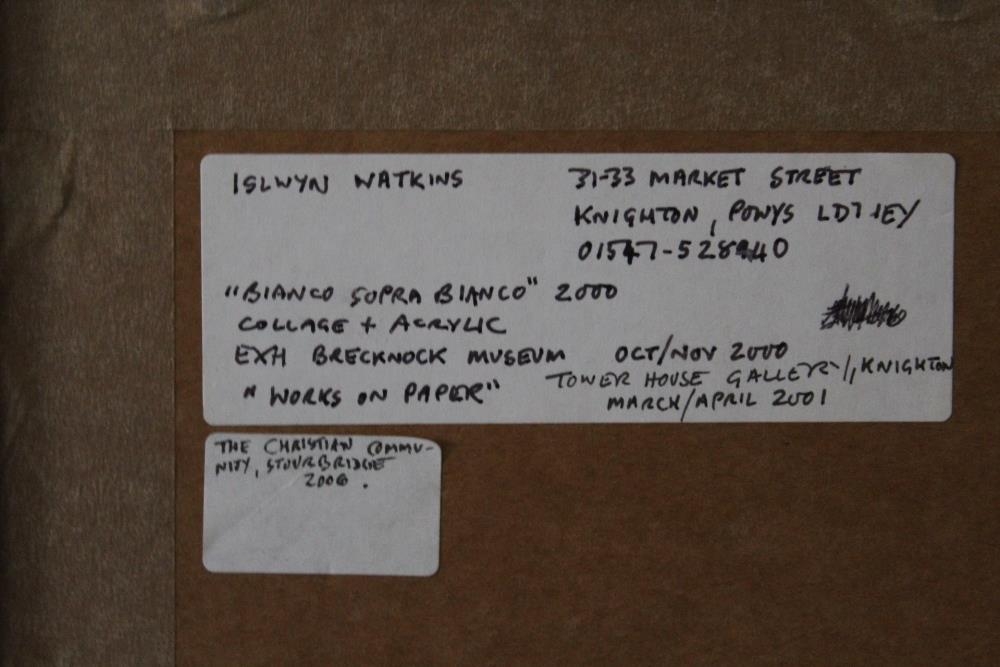 ISLWYN WATKINS
31-33 MARKET STREET
KNIGHTON, POWYS LD7 1EY
01547-528940
"BIANCO SOPRA BIANCO" 2000
COLLAGE + ACRYLIC
EXH BRECKNOCK MUSEUM OCT/NOV 2000
"WORKS ON PAPER"
TOWER HOUSE GALLERY, KNIGHTON
MARCH/APRIL 2001
THE CHRISTIAN COMMU-
NITY, STOURBRIDGE
2006.